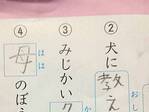 ②
犬に教え
おし
③
みじかい
④
母
はは
のぼう